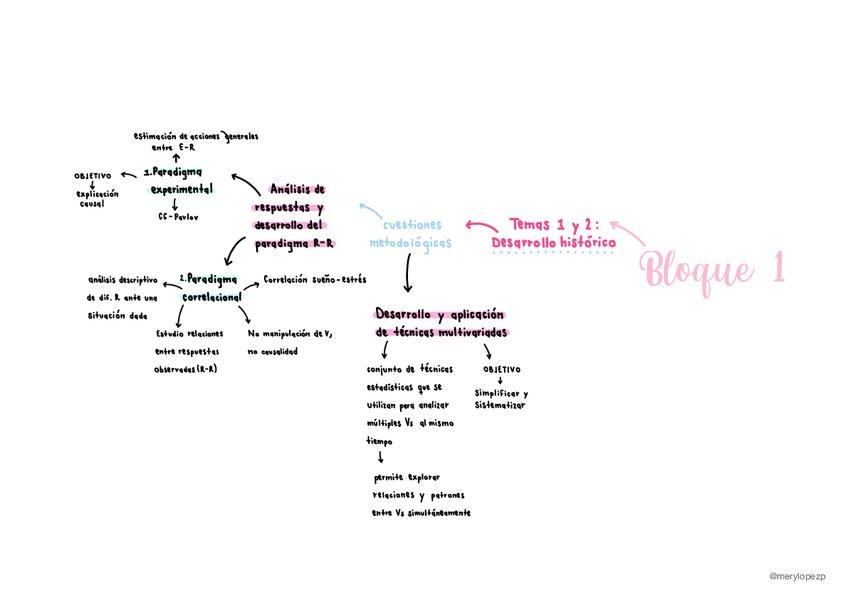 Bloque 1
Temas 1 y 2:
Desarrollo histórico
cuestiones
metodológicas
Análisis de
respuestas y
desarrollo del
paradigma R-R
1.Paradigma
experimental
estimación de acciones generales
entre E-R
OBJETIVO
explicación
causal
CC-Pavlov
2.Paradigma
correlacional
Correlación sueño-estrés
análisis descriptivo
de dif. R ante una
situación dada
Estudio relaciones
entre respuestas
observadas (R-R)
No manipulación de V,
no causalidad
Desarrollo y aplicación
de técnicas multivariadas
conjunto de técnicas
estadísticas que se
utilizan para analizar
múltiples Vs al mismo
tiempo
permite explorar
relaciones y patrones
entre Vs simultáneamente
OBJETIVO
Simplificar y
Sistematizar
@merylopezp